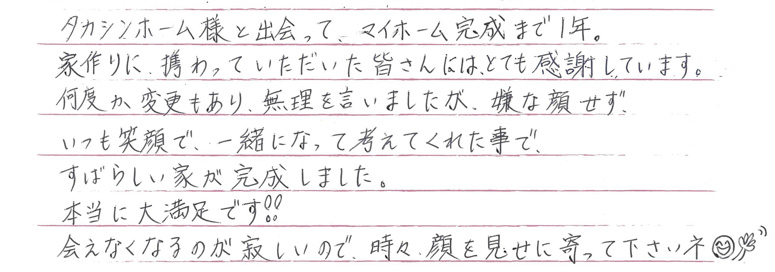 タカシンホーム様と出会って、マイホーム完成まで1年。
家作りに、携わっていただいた皆さんには、とても感謝しています。
何度か変更もあり、無理を言いましたが、嫌な顔せず、
いつも笑顔で、一緒になって考えてくれた事で、
すばらしい家が完成しました。
本当に大満足です!!
会えなくなるのが寂しいので、時々、顔を見せに寄って下さいネ